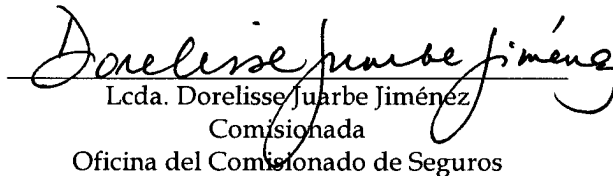 Dorelisse Juarbe Jiménez
Lcda. Dorelisse Juarbe Jiménez
Comisionada
Oficina del Comisionado de Seguros